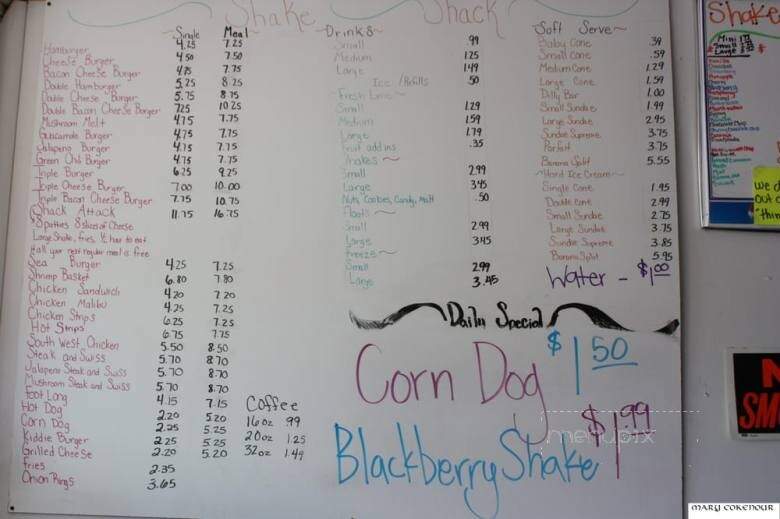 Shake Shack
Single Meal
Hamburger 4.25 7.25
Cheese Burger 4.50 7.50
Bacon Cheese Burger 4.75 7.75
Double Hamburger 5.25 8.25
Double Cheese Burger 5.75 8.75
Double Bacon Cheese Burger 7.25 10.25
Mushroom Melt 4.75 7.75
Guacamole Burger 4.75 7.75
Jalapeno Burger 4.75 7.75
Green Chili Burger 4.75 7.75
Triple Burger 6.25 9.25
Triple Cheese Burger 7.00 10.00
Triple Bacon Cheese Burger 7.75 10.75
Shack Attack 11.75 16.75
8 patties 8 slices of Cheese
Large Shake, fries, 1/2 hour to eat
it all your next regular meal is free
Sea Burger 4.25 7.25
Shrimp Basket 6.80 7.80
Chicken Sandwich 4.20 7.20
Chicken Malibu 4.25 7.25
Chicken Strips 6.25 7.25
Hot Strips 6.75 7.75
South West Chicken 5.50 8.50
Steak and Swiss 5.70 8.70
Jalapeno Steak and Swiss 5.70 8.70
Mushroom Steak and Swiss 5.70 8.70
Foot Long 4.15 7.15
Hot Dog 2.20 5.20
Corn Dog 2.25 5.25
Kiddie Burger 2.25 5.25
Grilled Cheese 2.20 5.20
Fries 2.35
Onion Rings 3.65
Coffee
16oz .99
20oz 1.25
32oz 1.49
Drinks~
Small .99
Medium 1.25
Large 1.49
Ice /Refills .50
~Fresh Lime~
Small 1.29
Medium 1.59
Large 1.79
Fruit add ins .35
Shakes~
Small 2.99
Large 3.45
Nuts, Cookies, Candy, Malt .50
Floats~
Small 2.99
Large 3.45
Freeze~
Small 2.99
Large 3.45
Soft Serve~
Baby Cone .39
Small Cone .59
Medium Cone 1.29
Large Cone 1.59
Dilly Bar 1.00
Small Sundae 1.99
Large Sundae 2.95
Sundae Supreme 3.75
Parfait 3.75
Banana Split 5.55
~Hard Ice Cream~
Single Cone 1.95
Double Cone 2.99
Small Sundae 2.75
Large Sundae 3.75
Sundae Supreme 3.85
Banana Split 5.95
Water - $1.00
Daily Special
Corn Dog $1.50
Blackberry Shake $1.99
menupix
Shake
Mini
Small
Large
we d
out o
"thin
N
SM
MARY COKENOUR